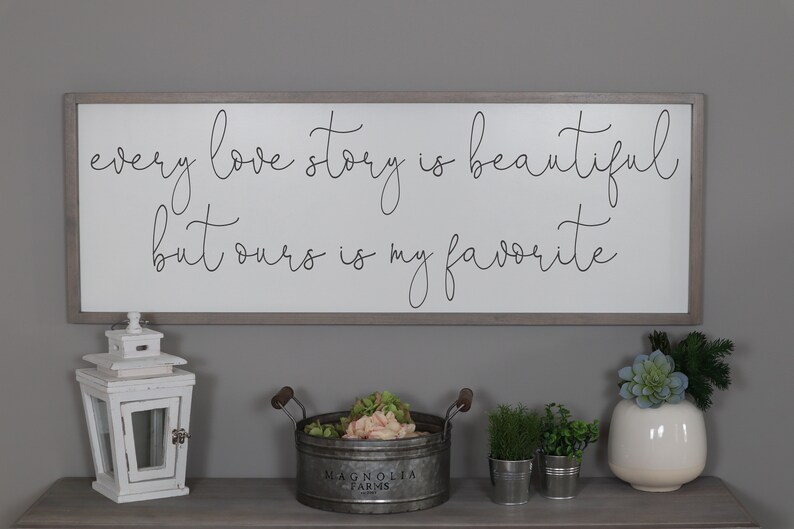 every love story is beautiful
but ours is my favorite
MAGNOLIA
FARMS